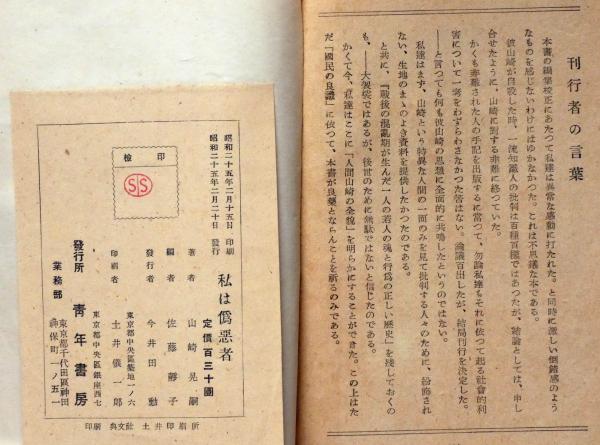 刊行者の言葉
本書の編集校正にあたつて私達は異常な感動に打たれた。と同時に激しい倒錯感のよう
なものを感じないわけにはゆかなかつた。これは不思議な本である。
彼山崎が自殺した時、一流知識人の批判は百種百様ではあつたが、結論としては、申し
合せたように、山崎に対する非難に終つていた。
かくも非難された人の手記を出版するに当つて、勿論私達もそれに依つて起る社会的利
害について一考をわずらわさなかつた筈はない。論議百出したが、結局刊行を決定した。
――と言つても何も彼山崎の思想に全面的に共鳴したというのではない。
私達はまず、山崎という特異な人間の一面のみを見て批判する人々のために、粉飾され
ない、生地のまゝのよき資料を提供したかつたのである。
と共に、『戦後の混乱期が生んだ一人の若人の魂と行為の正しい歴史』を残しておくの
も、――大袈裟ではあるが、後世のために無駄ではないと信じたのである。
かくて今、私達はここに『人間山崎の全貌』を明らかにすることができた。この上はた
だ『國民の良識』に依つて、本書が良薬とならんことを祈るのみである。
昭和二十五年二月十五日 印刷
昭和二十五年二月二十日 發行
檢印
SS
私は僞悪者
定價百三十圓
著者 山崎晃嗣
編者 佐藤靜子
發行者 今井田勳
東京都中央區築地一ノ六
印刷者 土井儀一郎
東京都中央區銀座西七
發行所 靑年書房
業務部 東京都千代田區神田
神保町一ノ五一
印刷 典文社 土井印刷所